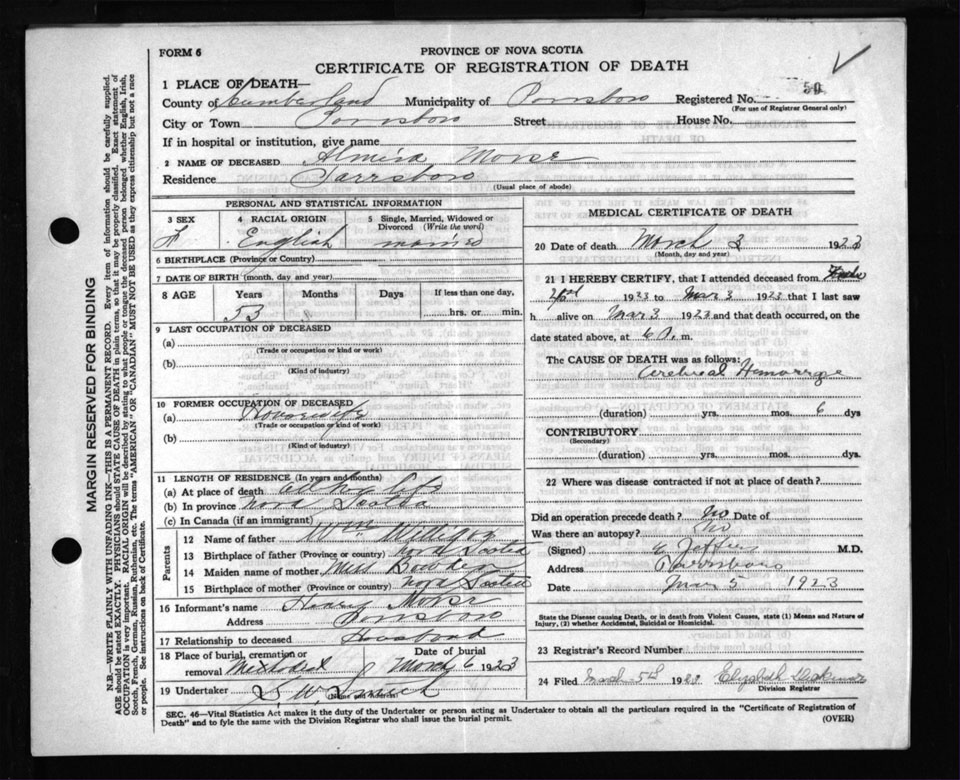 FORM 6
PROVINCE OF NOVA SCOTIA
CERTIFICATE OF REGISTRATION OF DEATH
1 PLACE OF DEATH—
50
County of Cumberland Municipality of Parrsboro Registered No.
(For use of Registrar General only)
City or Town Parrsboro Street House No.
If in hospital or institution, give name
2 NAME OF DECEASED Almira Morse
Residence Parrsboro
(Usual place of abode)
PERSONAL AND STATISTICAL INFORMATION
3 SEX 4 RACIAL ORIGIN 5 Single, Married, Widowed or Divorced (Write the word)
F English married
6 BIRTHPLACE (Province or Country)
7 DATE OF BIRTH (month, day and year)
8 AGE Years Months Days If less than one day,
53 hrs. or min.
9 LAST OCCUPATION OF DECEASED
(a)
(Trade or occupation or kind or work)
(b)
(Kind of industry)
10 FORMER OCCUPATION OF DECEASED
(a) Housewife
(Trade or occupation or kind of work)
(b)
(Kind of industry)
11 LENGTH OF RESIDENCE (In years and months)
(a) At place of death all her life
(b) In province Nova Scotia
(c) In Canada (if an immigrant)
Parents
12 Name of father Wm
13 Birthplace of father (Province or country) Nova Scotia
14 Maiden name of mother Miss
15 Birthplace of mother (Province or country) Nova Scotia
16 Informant's name Henry Morse
Address Parrsboro
17 Relationship to deceased Housband
18 Place of burial, cremation or removal Date of burial
Methodist March 6 1923
19 Undertaker
MEDICAL CERTIFICATE OF DEATH
20 Date of death March 3 1923
(Month, day and year)
21 I HEREBY CERTIFY, that I attended deceased from
1923 to Mar 3 1923 that I last saw
h alive on Mar 3 1923 and that death occurred, on
date stated above, at 6 a. m.
The CAUSE OF DEATH was as follows:
Cerebral Hemorrage
(duration) yrs. mos. 6 dys
CONTRIBUTORY
(Secondary)
(duration) yrs. mos. dys.
22 Where was disease contracted if not at place of death?
Did an operation precede death? No Date of
Was there an autopsy? No
(Signed) M.D.
Address Parrsboro
Date Mar 5 1923
State the Disease causing Death, or in death from Violent Causes, state (1) Means and Nature of
Injury, (2) whether Accidental, Suicidal or Homicidal.
23 Registrar's Record Number
24 Filed March 5th 1923 Elizabeth
Division Registrar
SEC. 46—Vital Statistics Act makes it the duty of the Undertaker or person acting as Undertaker to obtain all the particulars required in the "Certificate of Registration of
Death" and to fyle the same with the Division Registrar who shall issue the burial permit.
(OVER)
MARGIN RESERVED FOR BINDING
N.B.—WRITE PLAINLY WITH UNFADING INK—THIS IS A PERMANENT RECORD. Every item of information should be carefully supplied.
AGE should be stated EXACTLY. PHYSICIANS should STATE CAUSE OF DEATH in plain terms, so that it may be properly classified. Exact statement of
OCCUPATION is very important. RACIAL ORIGIN will be described by stating to what people or tongue the deceased person belonged whether English, Irish,
Scotch, French, German, Russian, Ruthenian, etc. The terms "AMERICAN" OR "CANADIAN" MUST NOT BE USED as they express citizenship but not a race
or people. See instructions on back of Certificate.